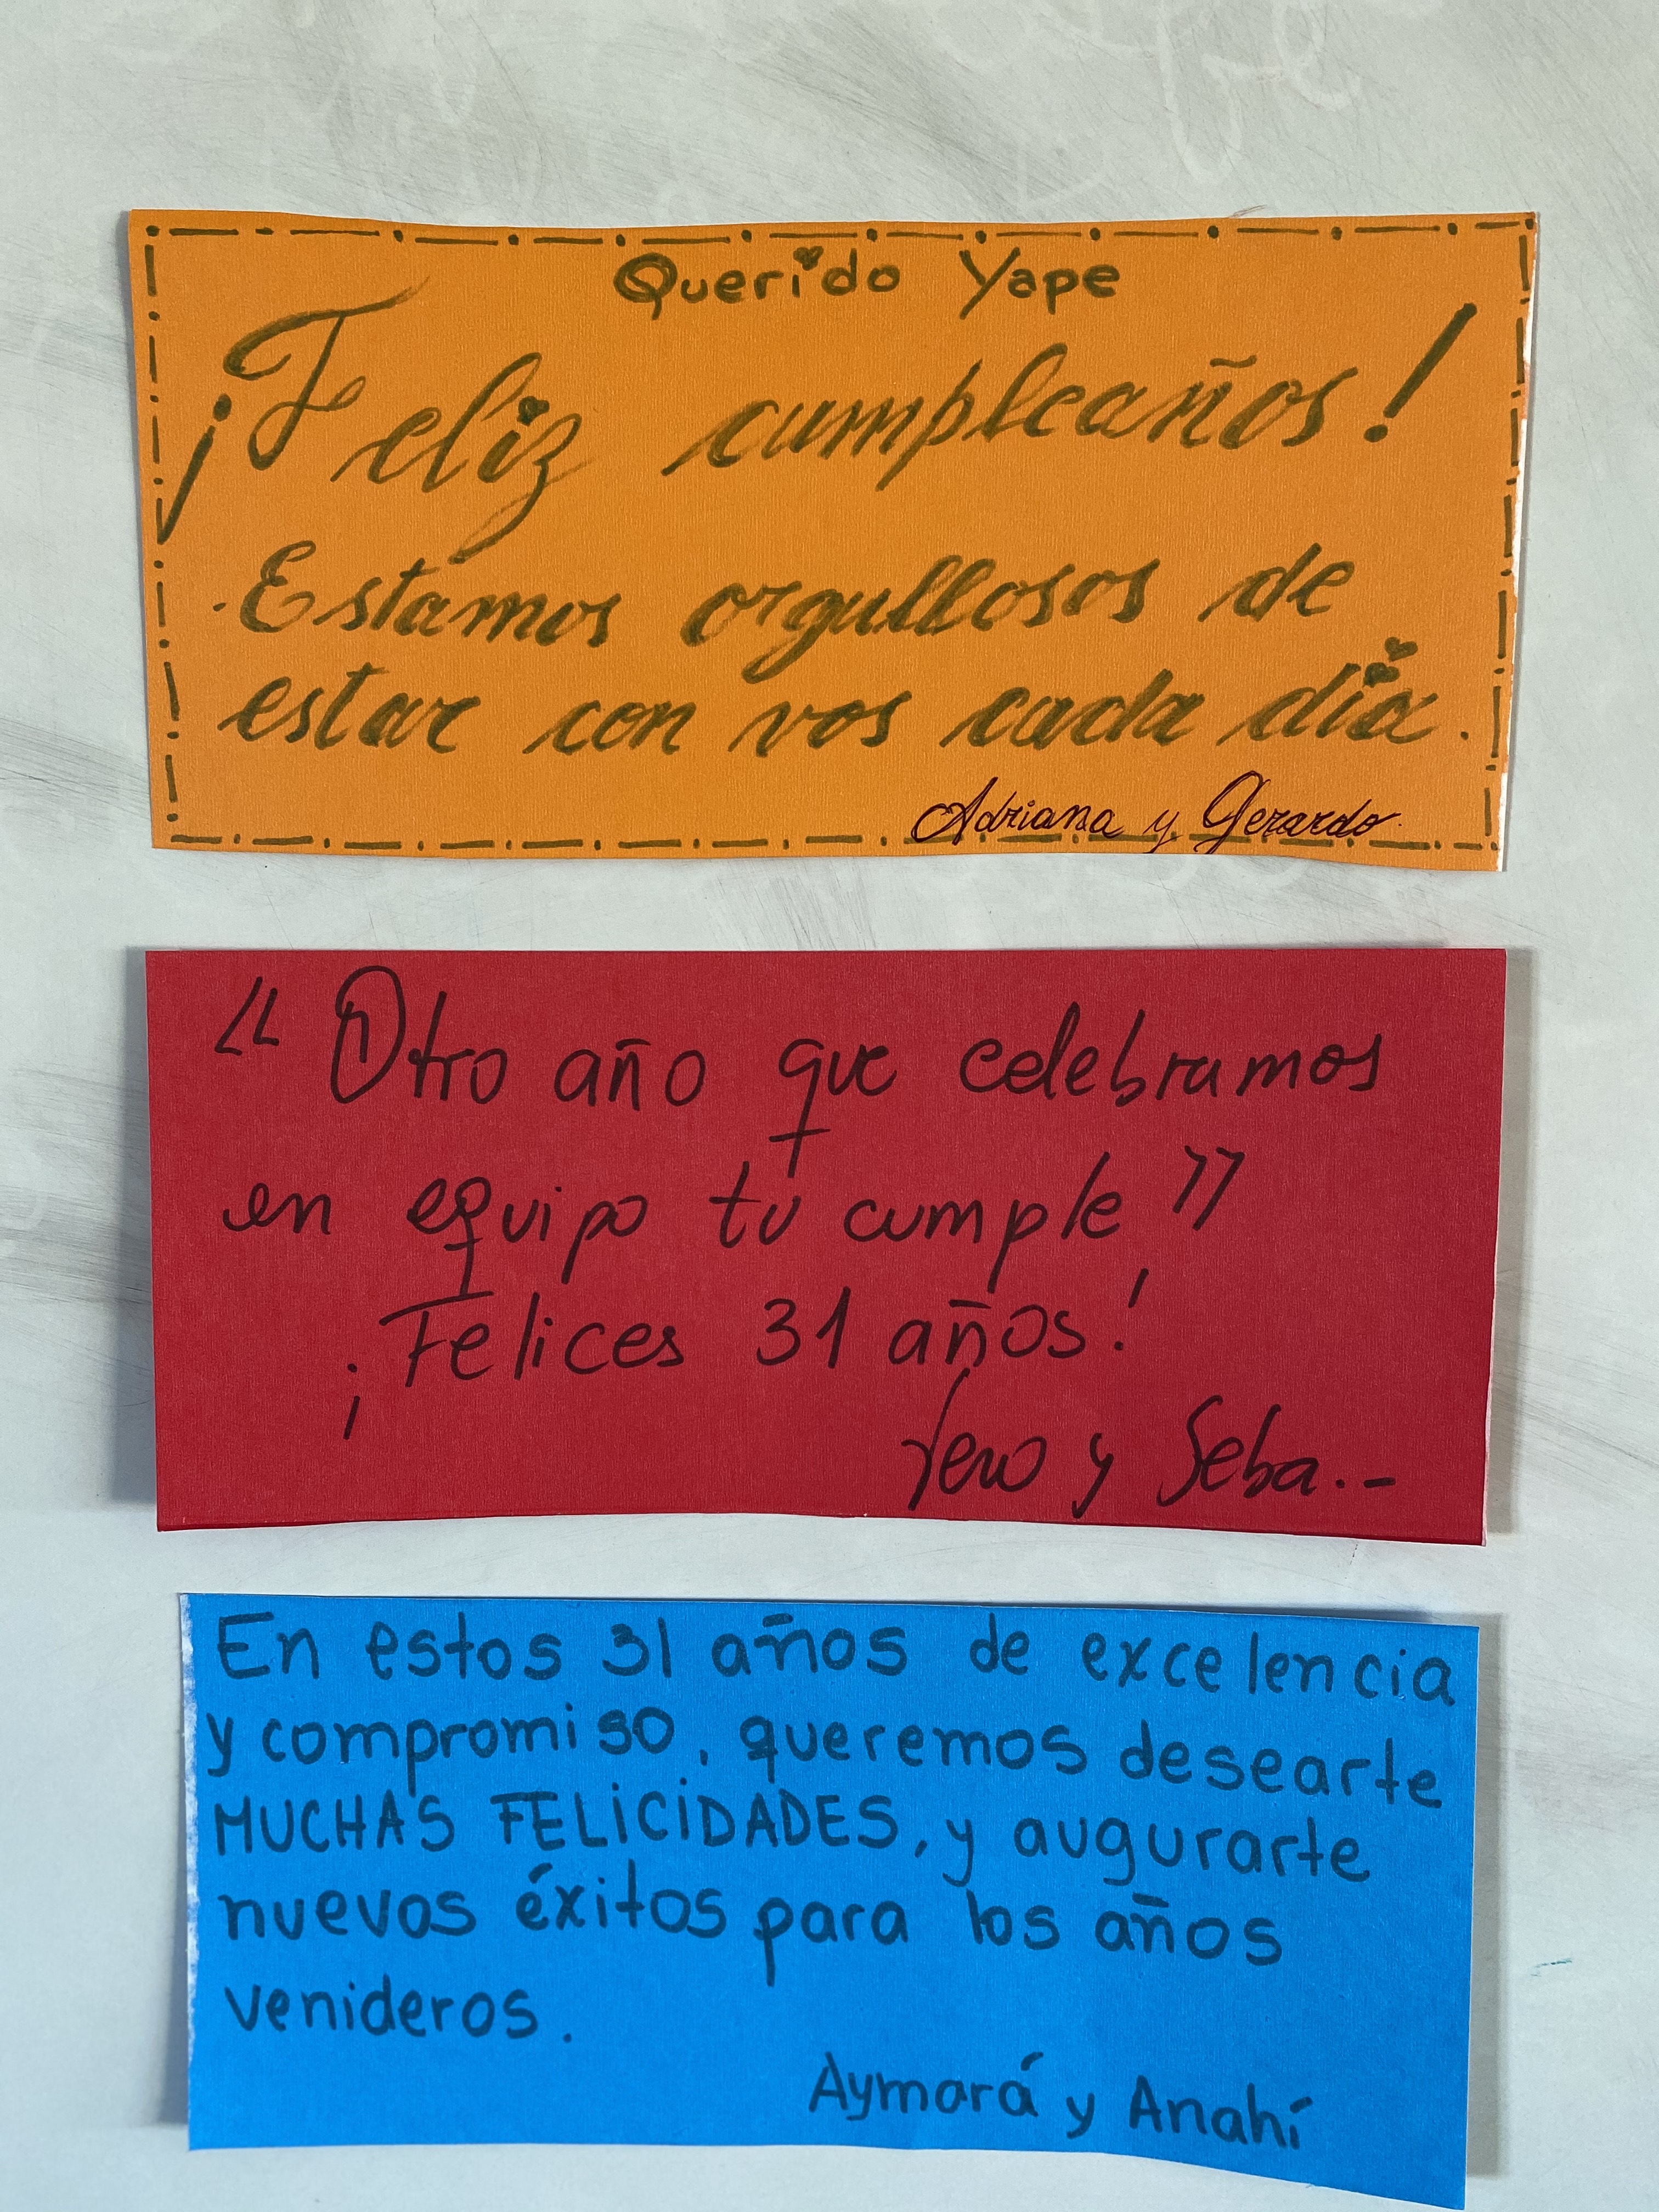 Querido Yape
¡Feliz cumpleaños!
Estamos orgullosos de
estar con vos cada día.
Adriana y Gerardo.
"Otro año que celebramos
en equipo tu cumple"
¡Felices 31 años!
Yero y Seba..-
En estos 31 años de excelencia
y compromiso, queremos desearte
MUCHAS FELICIDADES, y augurarte
nuevos éxitos para los años
venideros.
Aymará y Anahí